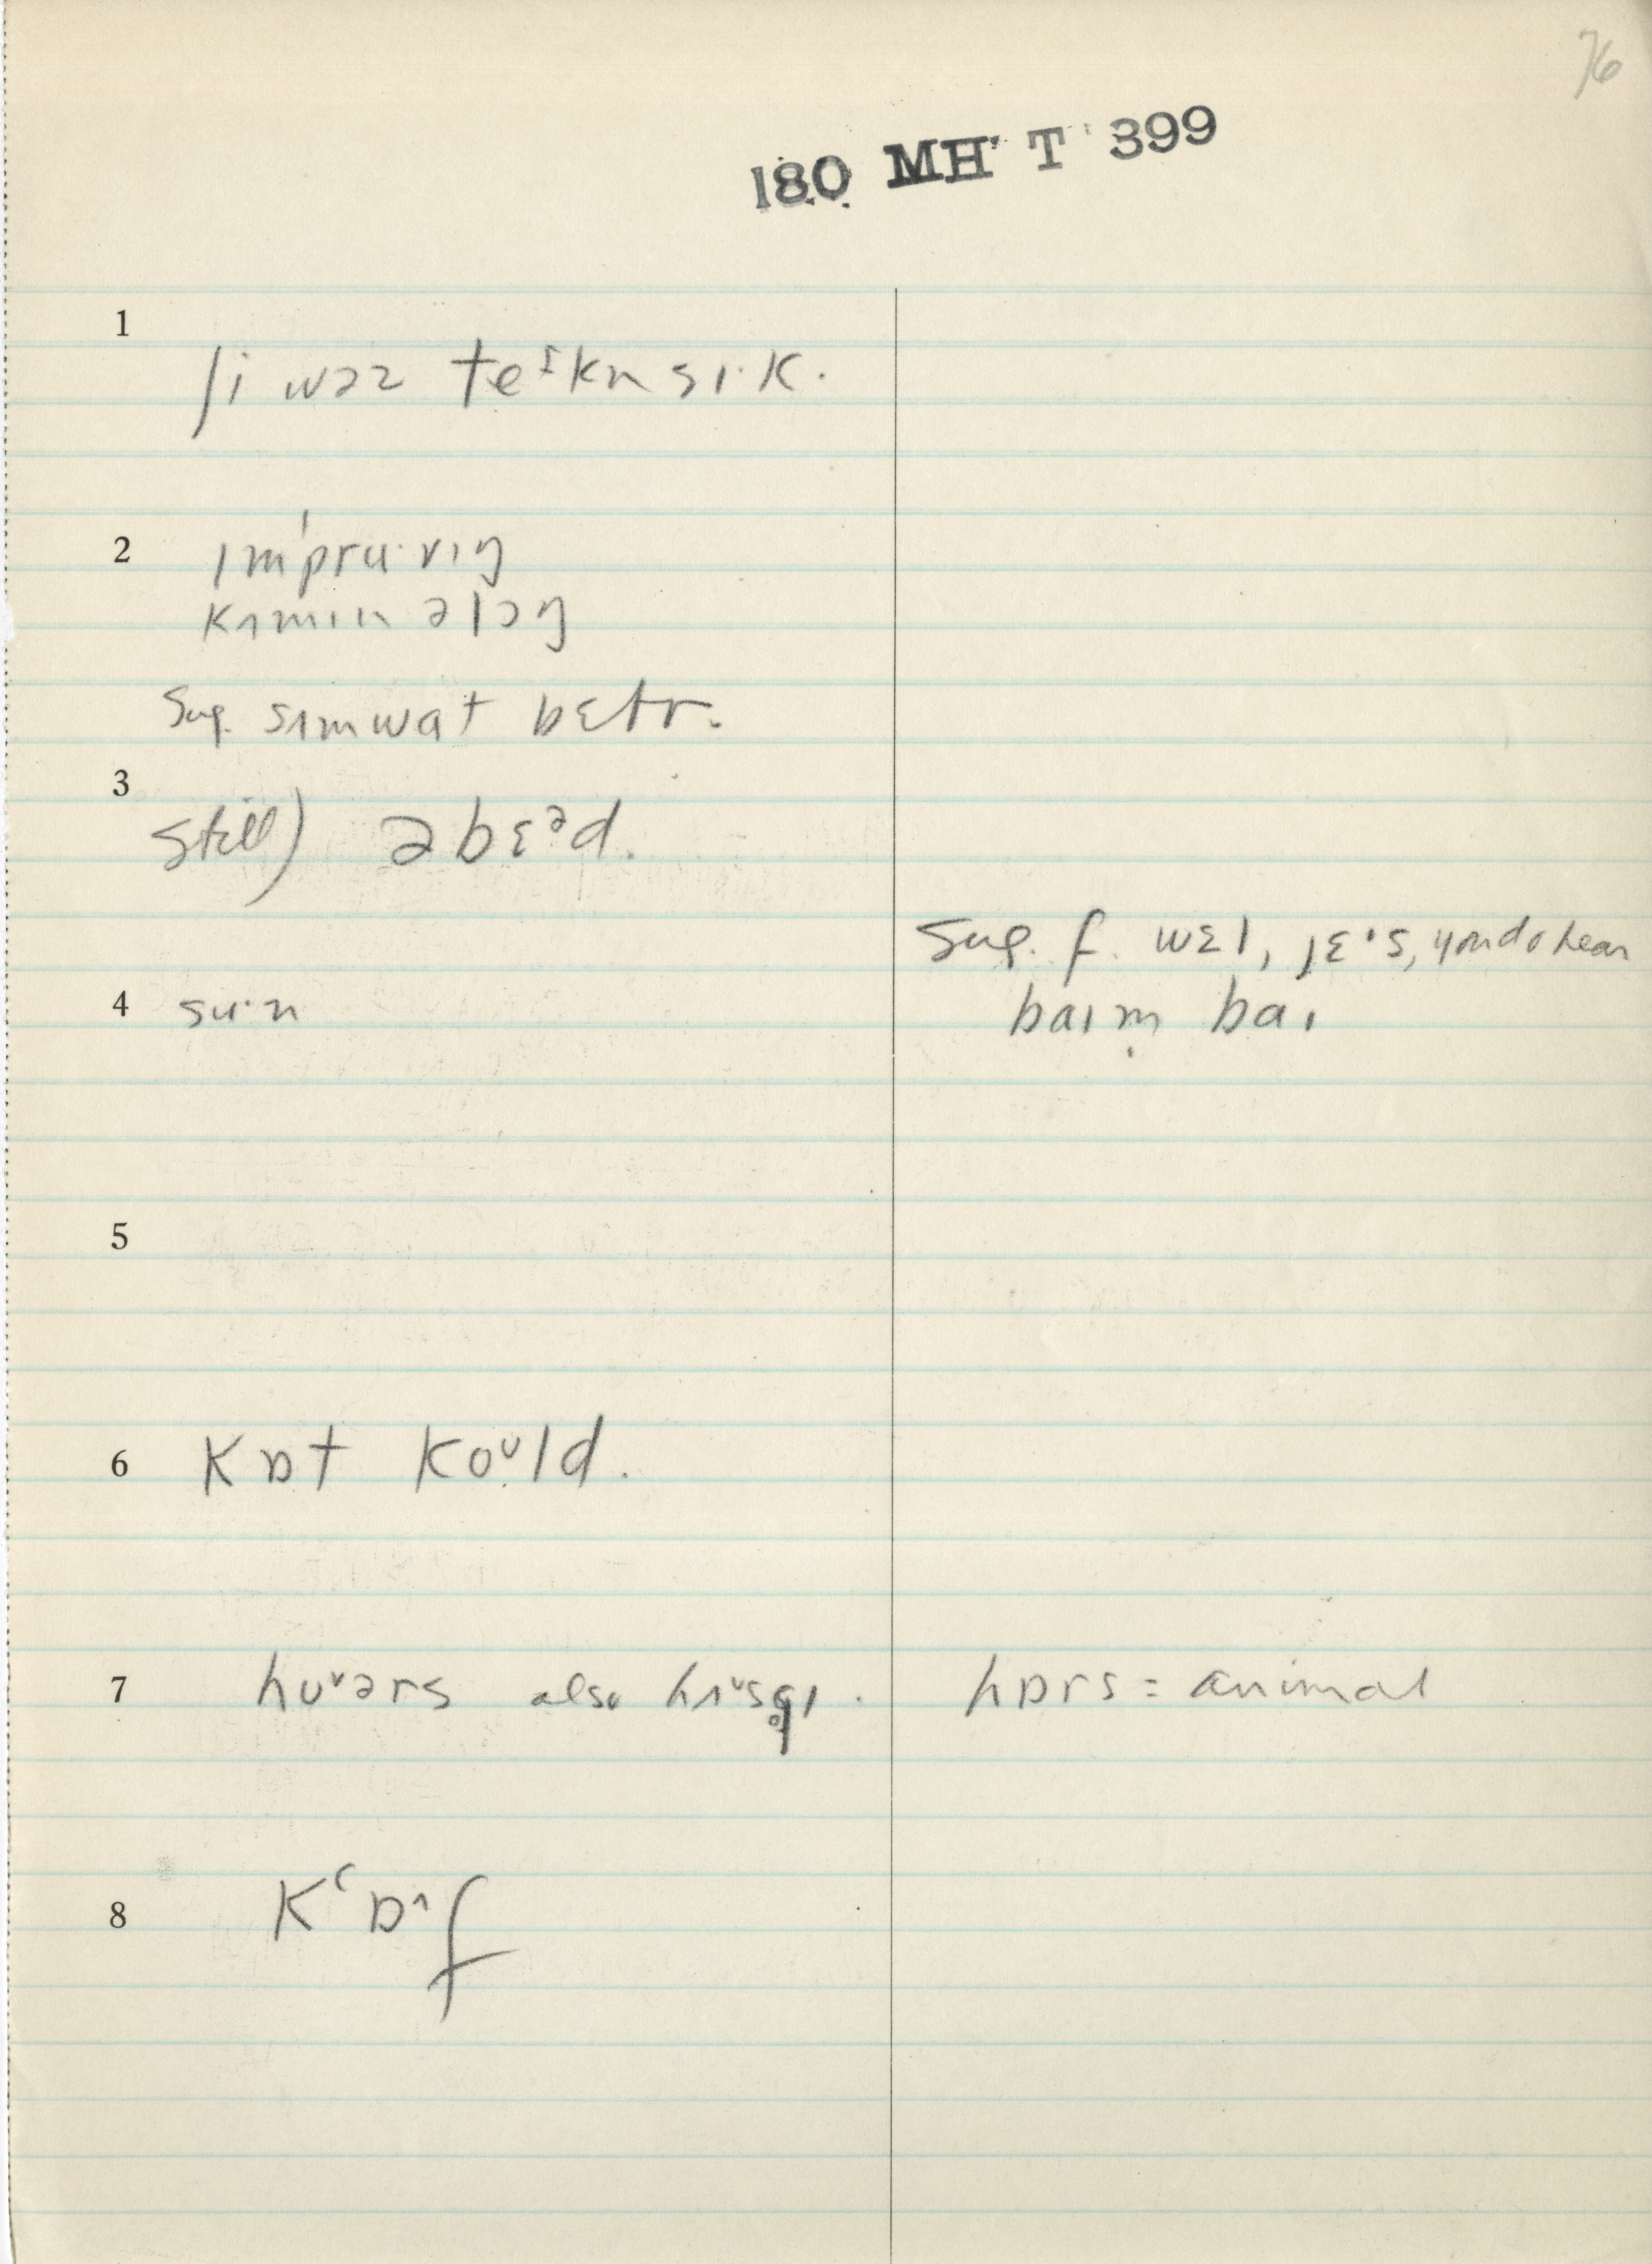 76
180 MH T 399
1
ʃi wəz teᶦkn sɪ·k.
2
ɪmˈpru·vɪŋ
kʌmɪn əlɔŋ
Sug. sʌmwat bɛtr.
3
still) əbɛᵊd.
Sug. f. wɛl, jɛ·s, you do hear
4 su·n
baɪm baɪ
5
6 kɒt koᶷld.
7 huᵛərs also hʌᵛsḁɪ. hɒrs = animal
8 kʻɒ^f